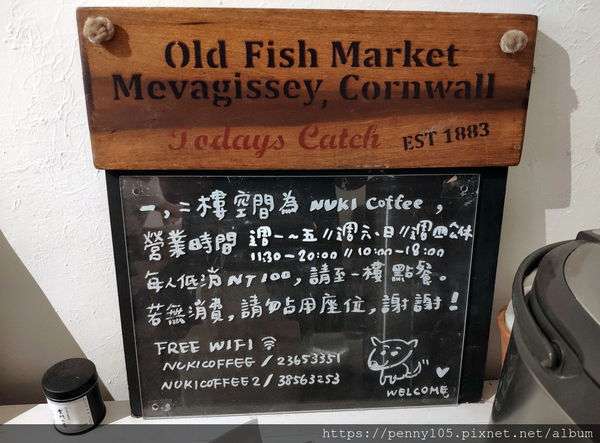 Old Fish Market
Mevagissey, Cornwall
Todays Catch EST 1883
一,二樓空間為 NUKI Coffee,
營業時間 週一~五 // 週六、日 // 週四公休
11:30-20:00 // 10:00-18:00
每人低消 NT100,請至一樓點餐。
若無消費,請勿占用座位,謝謝!
FREE WIFI
NUKICOFFEE / 23653351
NUKICOFFEE2 / 38563253
WELCOME
https://penny105.pixnet.net/album